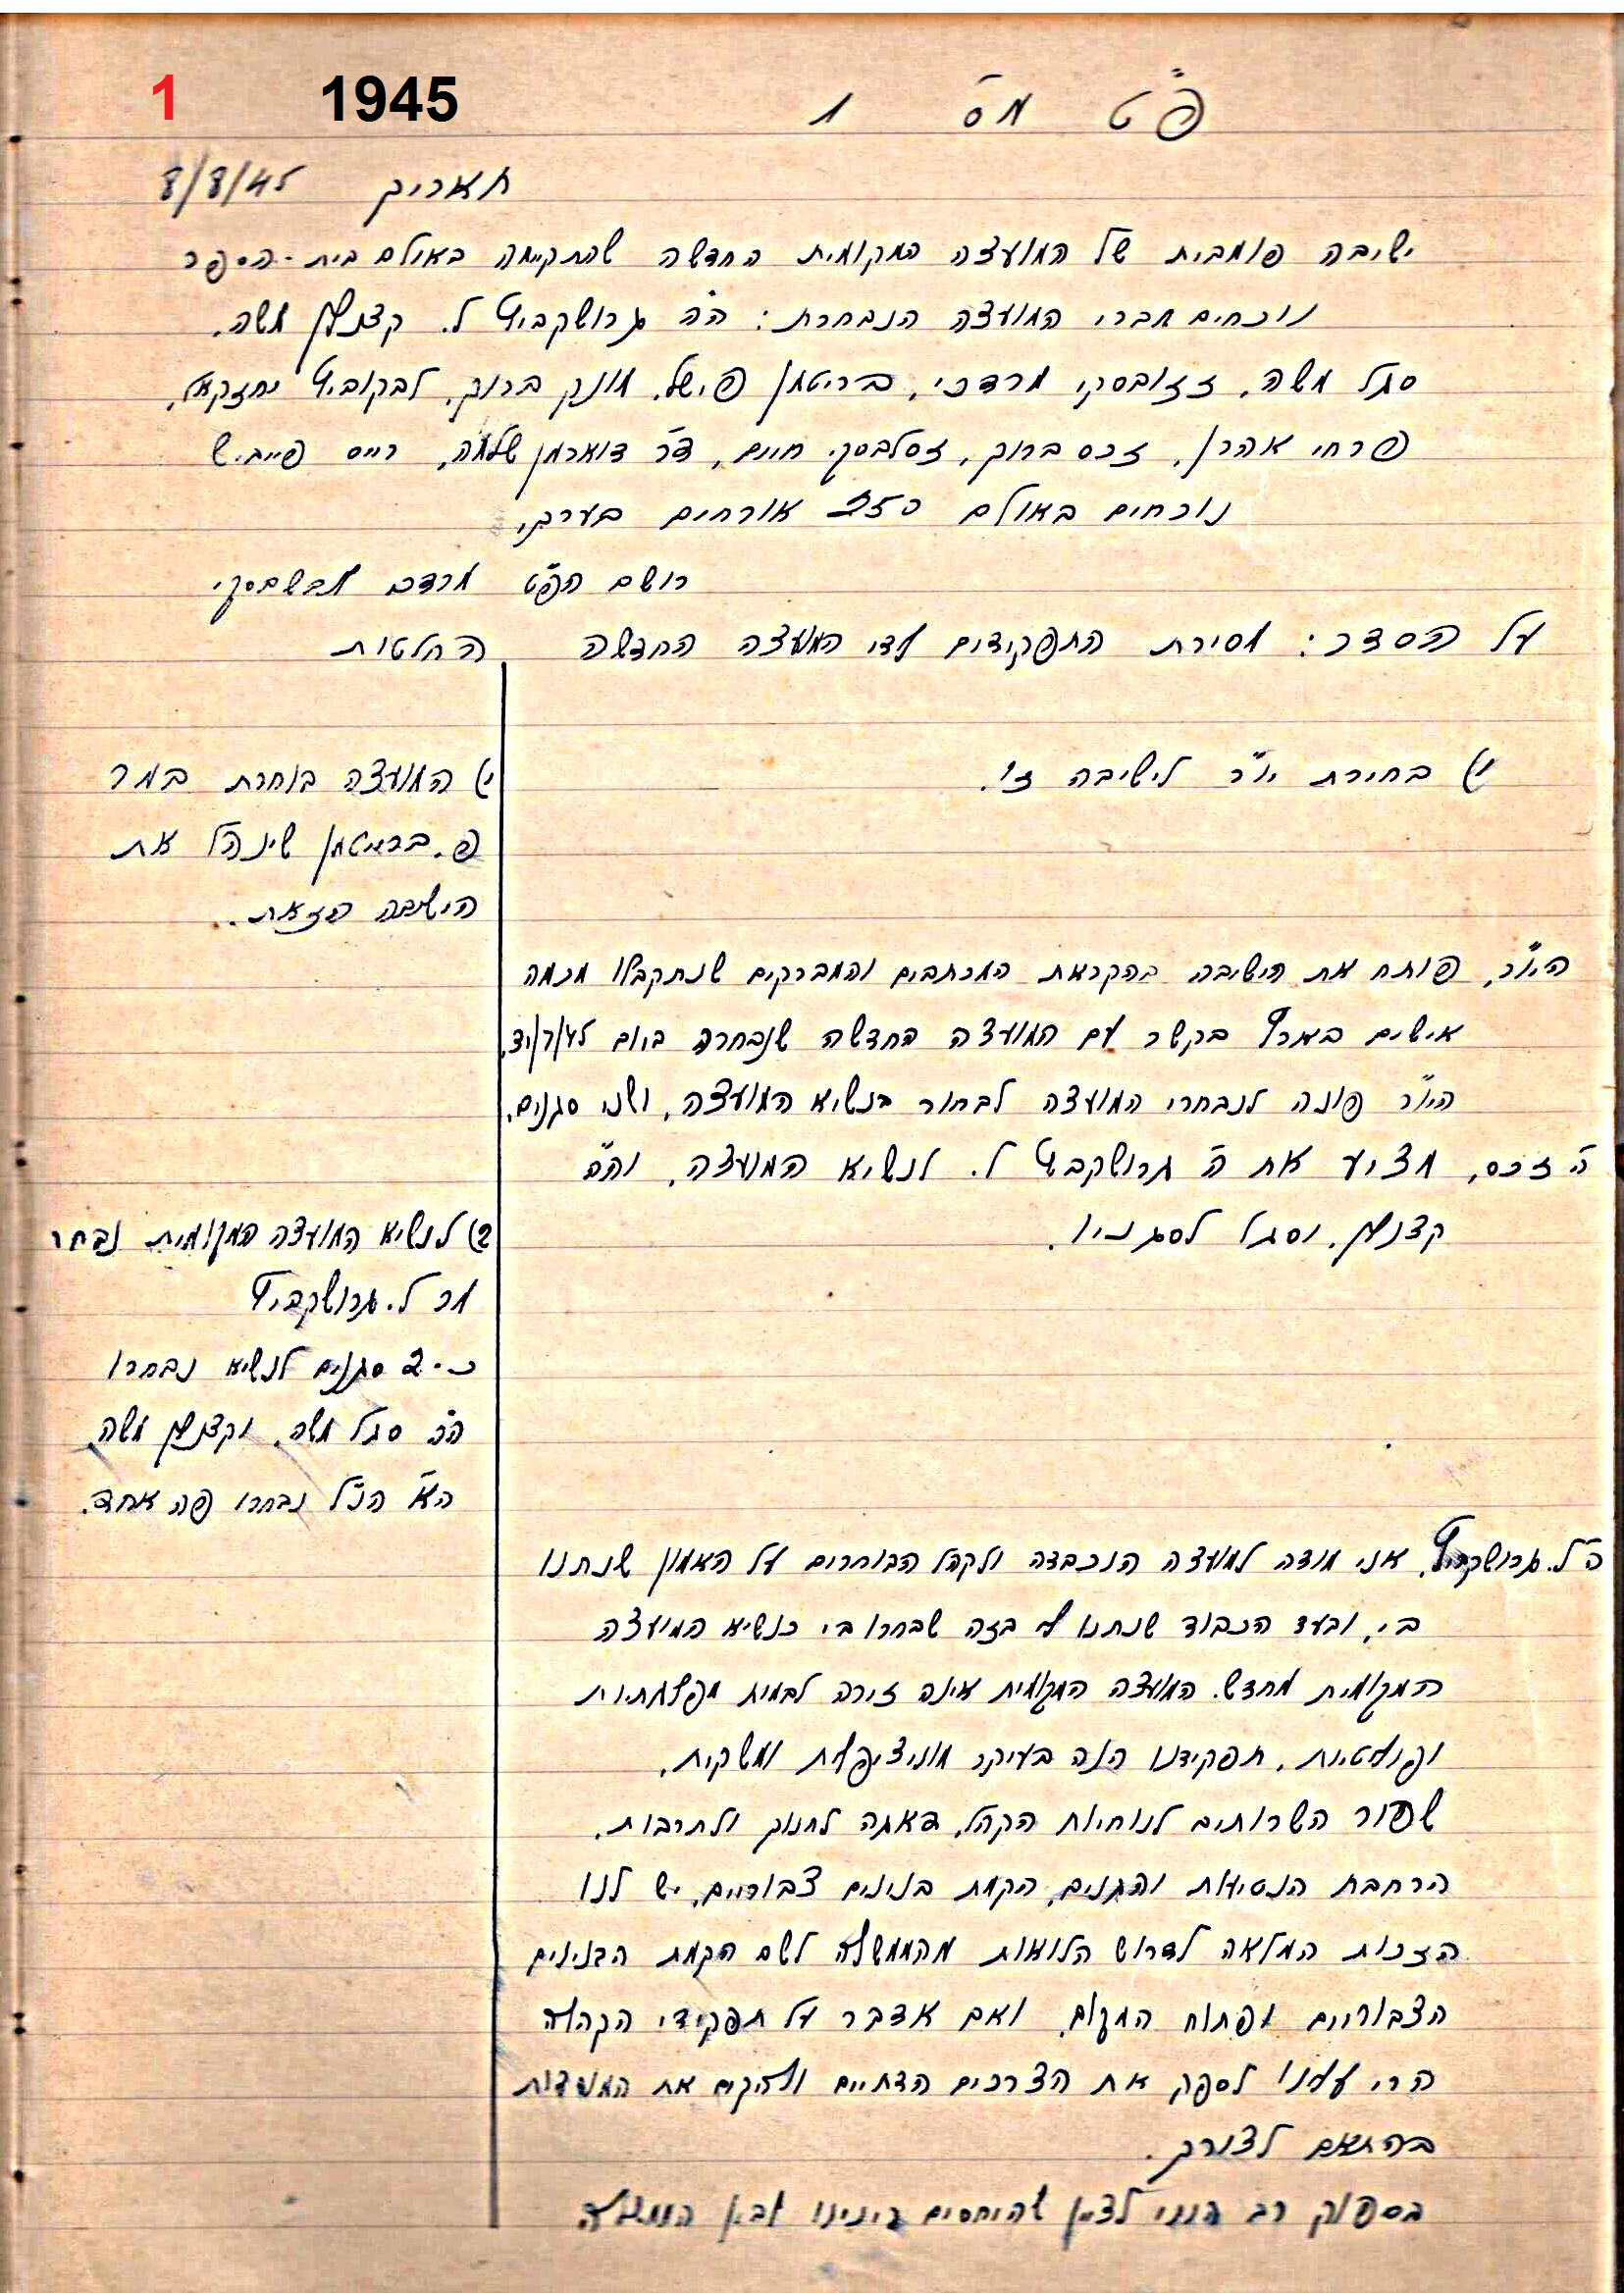 1 1945
פ״ט מס׳ 1
תאריך 8/8/45
ישיבה פומבית של המועצה המקומית החדשה שהתקיימה באולם בית-הספר
נוכחים חברי המועצה הנבחרת: ה״ה גרושקביץ ל. קצנלסון משה.
סגל משה, מרדכי, ברייטמן פישל, מונק ברוך, לבקוביץ יחזקאל,
פרחי אהרן, זכס ברוך, זסלבסקי חיים, ד״ר דוארמן שלמה, רייס פייביש
נוכחים באולם 250 אורחים בערך,
רושם הפ״ט מרדכי
על הסדר: מסירת התפקידים לידי המועצה החדשה החלטות
1) בחירת יו״ר לישיבה זו.
1) המועצה בוחרת במר
פ. ברייטמן שינהל את
הישיבה הזאת.
היו״ר, פותח את הישיבה בהקראת המכתבים והמברקים שנתקבלו מכמה
אישים בארץ בקשר עם המועצה החדשה שנבחרה ביום
היו״ר פונה לנבחרי המועצה לבחור בנשיא המועצה, ושני סגנים,
ה׳ זכס, מציע את ה׳ גרושקביץ ל. לנשיא המועצה, וה״ה
קצנלסון, וסגל לסגניו.
2) לנשיא המועצה המקומית נבחר
מר ל. גרושקביץ
כ-2 סגנים לנשיא נבחרו
ה״ה סגל משה, וקצנלסון משה,
הא׳ הנ״ל נבחרו פה אחד.
ה׳ ל. גרושקביץ, אני מודה למועצה הנכבדה ולקהל הבוחרים על האמון שנתנו
בי, ובעד הכבוד שנתנו לי בזה שבחרו בי כנשיא המועצה
המקומית מחדש. המועצה המקומית אינה זירה לבמות מפלגתיות
ופוליטיות. תפקידנו הנה בעיקר מוניציפלית ומשקית.
שפור השרותים לנוחיות הקהל, דאגה לחנוך ולתרבות,
הרחבת הנטיעות והגנים, הקמת בנינים צבוריים, יש לנו
הזכות המלאה לדרוש הלואות מהממשלה לשם הקמת הבנינים
הצבוריים ופתוח המקום, ואם אדבר על תפקידי הקהלה
הרי עלינו לספק את הצרכים הדתיים ולהקים את המוסדות
בהתאם לצורך.
בספוק רב הנני לציין שהיחסים בינינו ובין הממשלה